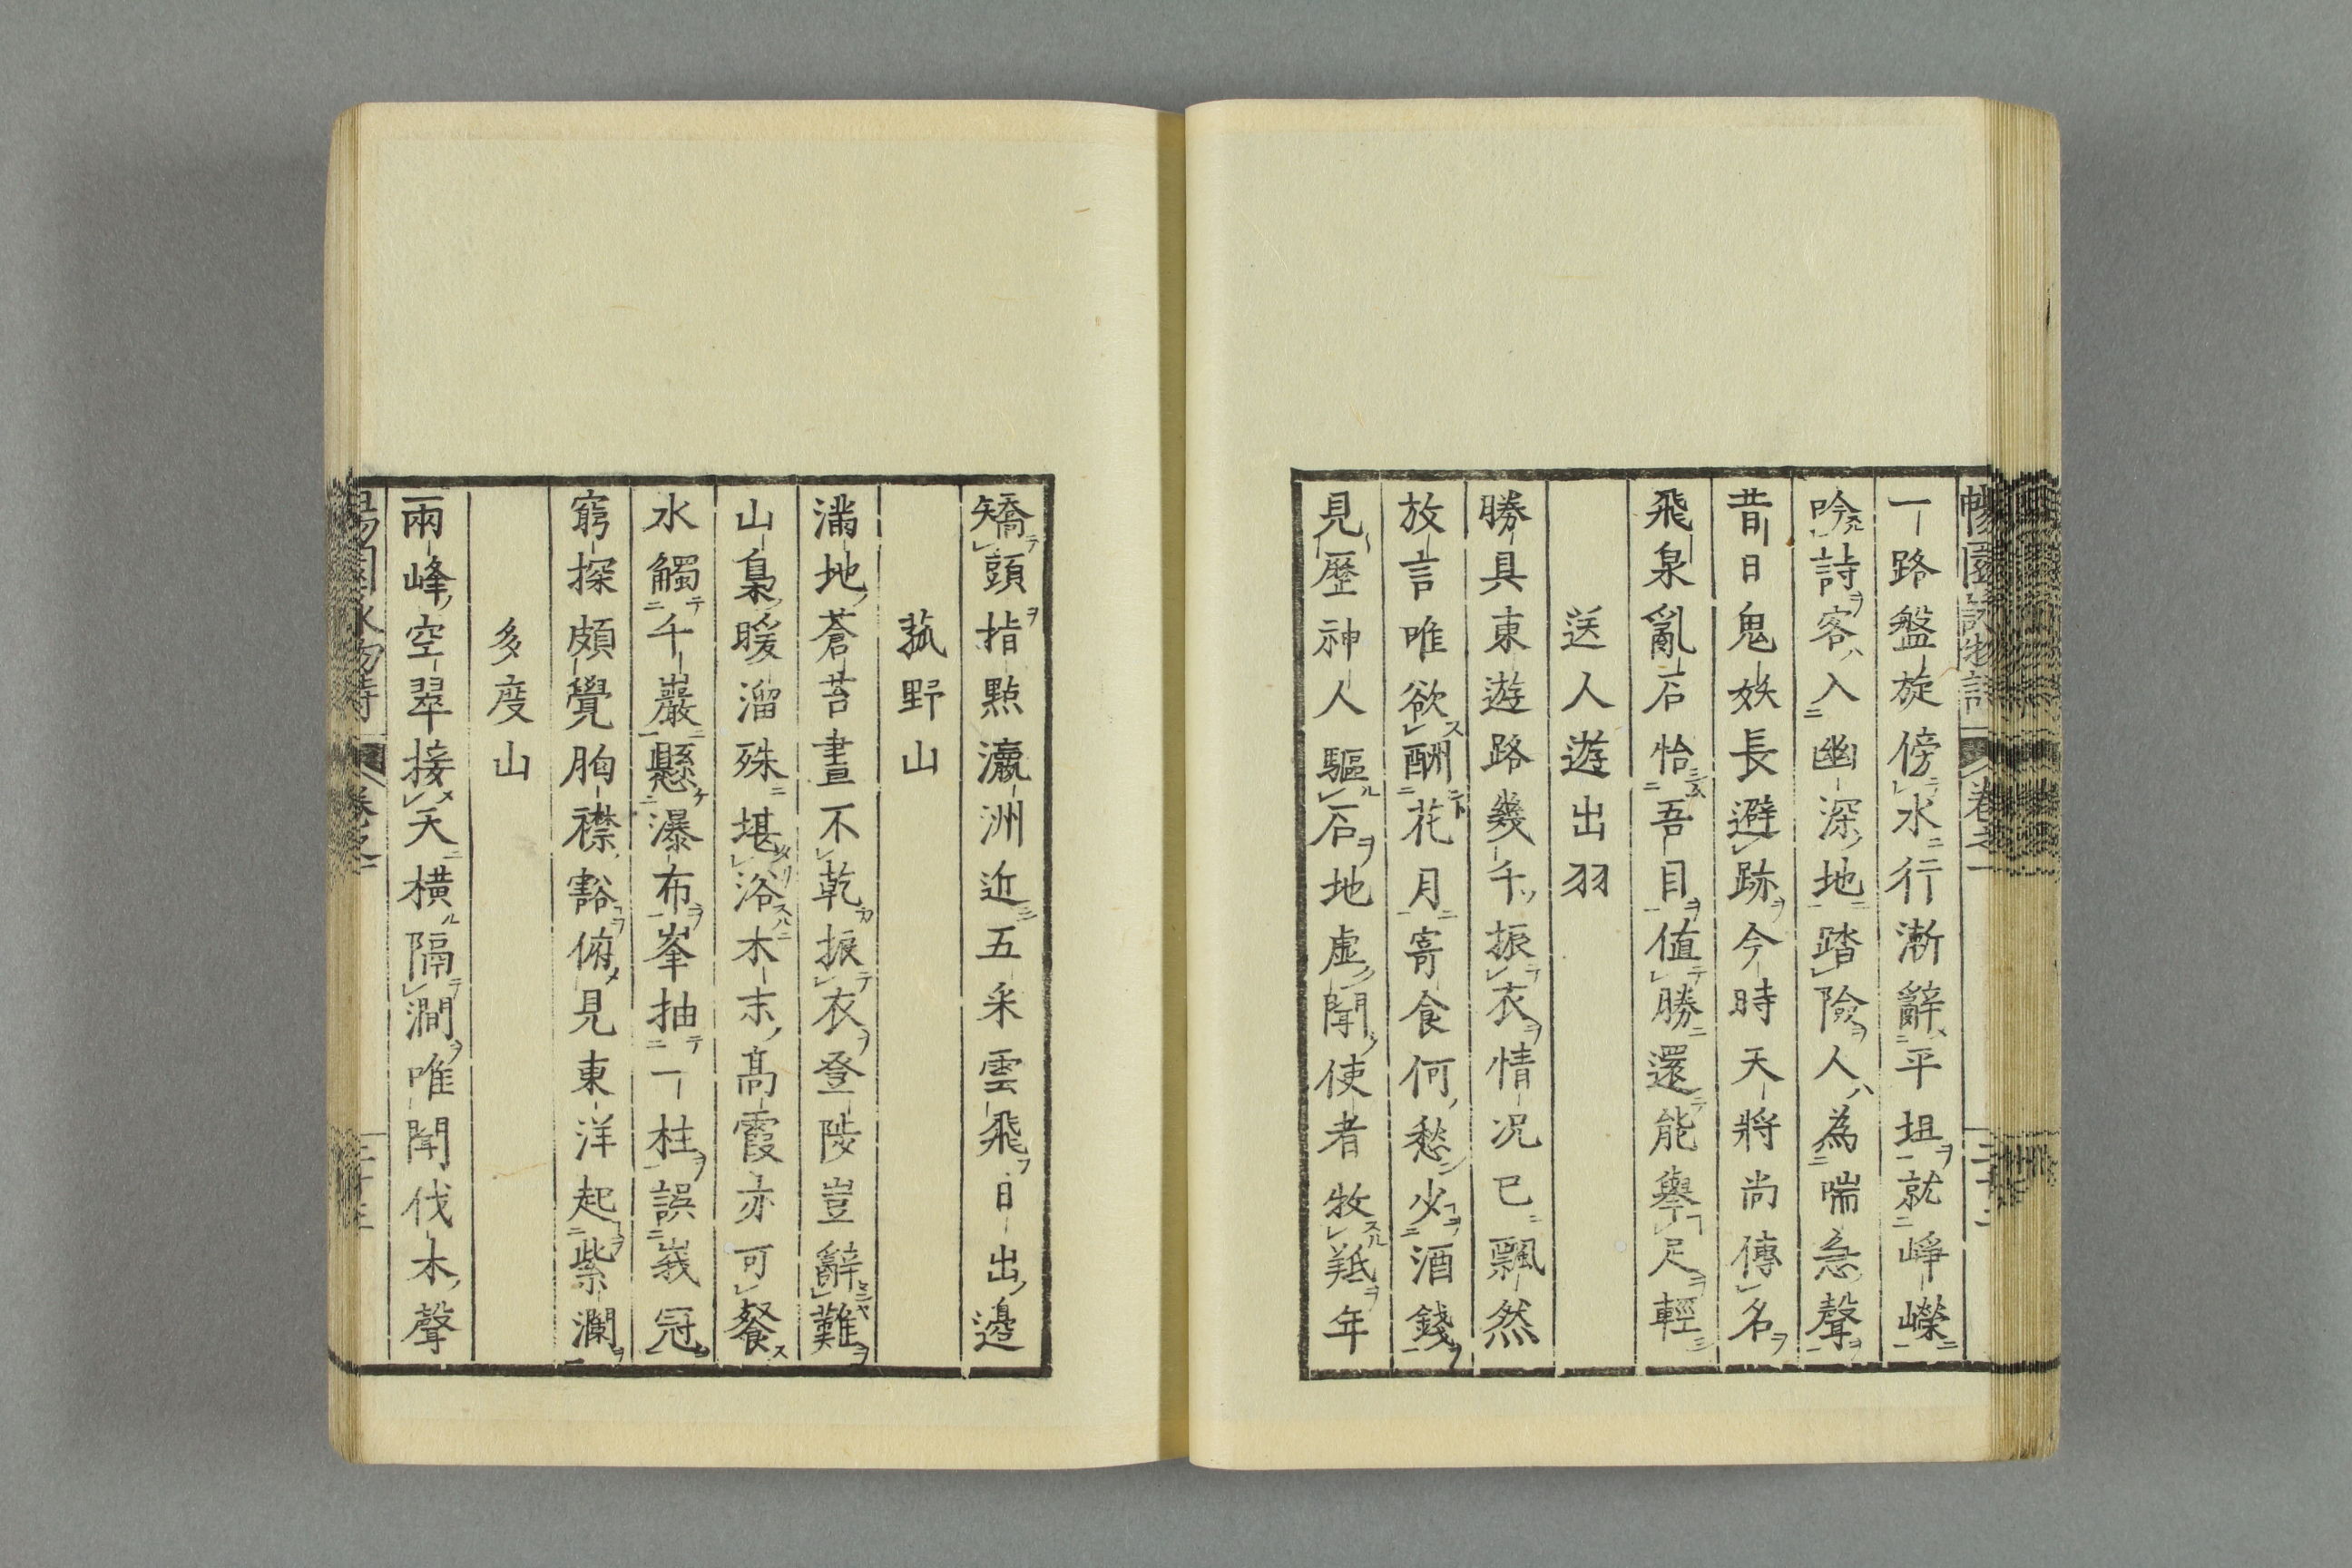 一路盤旋傍水行漸辭平坦就崢嶸
吟詩客入幽深地踏險人為喘急聲
昔日鬼妖長避跡今時天將尚傳名
飛泉亂石恰吾目值勝還能舉足輕
送人遊出羽
勝具東遊路幾千振衣情况已飄然
放言唯欲酬花月寄食何愁少酒錢
見歴神人驅石地虛聞使者牧羝年
矯頭指點瀛洲近五采雲飛日出邊
菰野山
滿地蒼苔晝不乾振衣登陟豈辭難
山梟暖溜殊堪浴木末高霞亦可餐
水觸千巖懸瀑布峯抽一柱誤峩冠
窮探頗覺胸襟豁俯見東洋起紫瀾
多度山
兩峰空翠接天橫隔澗唯聞伐木聲